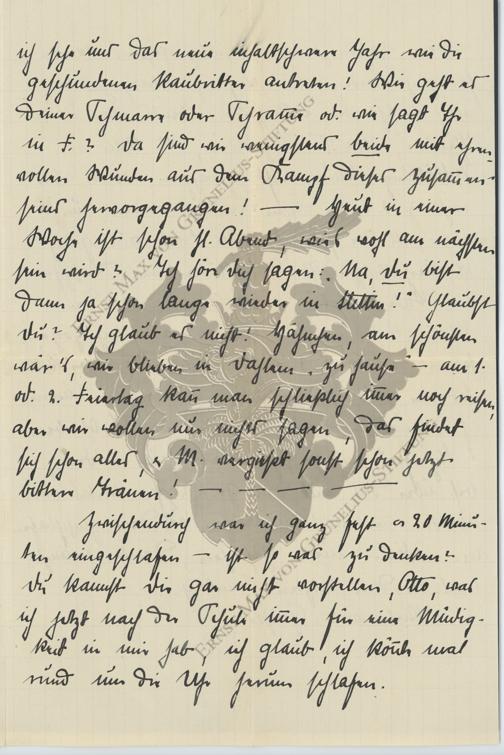 ich sehe uns das neue inhaltschwere Jahr wie die
geschundenen Raubritter antreten! Wie geht es
Deiner Schmarre oder Schramme od. wie sagt Ihr
in F.? Da sind wir wenigstens beide mit ehren-
vollen Wunden aus dem Kampf dieses Zusammen-
seins hervorgegangen! — Heut in einer
Woche ist schon hl. Abend, wies wohl am nächsten
sein wird? Ich hör Dich sagen: "Na, du bist
dann ja schon lange wieder in Stettin!" Glaubst
Du? Ich glaub es nicht! Hähnchen, am schönsten
wär's, wir blieben in Dahlem "zu hause" – am 1.
od. 2. Feiertag kann man schließlich immer noch reisen,
aber wir wollen nur nichts sagen, das findet
sich schon alles, M. vergießt sonst schon jetzt
bittere Tränen! — — —
Zwischendurch war ich ganz fest 20 Minu-
ten eingeschlafen – ist so was zu denken?
Du kannst Dir gar nicht vorstellen, Otto, was
ich jetzt nach der Schule immer für eine Müdig-
keit in mir hab, ich glaub, ich könnte mal
rund um die Uhr herum schlafen.
ERNST MAX VON GRUNELIUS-STIFTUNG
ERNST MAX VON GRUNELIUS-STIFTUNG